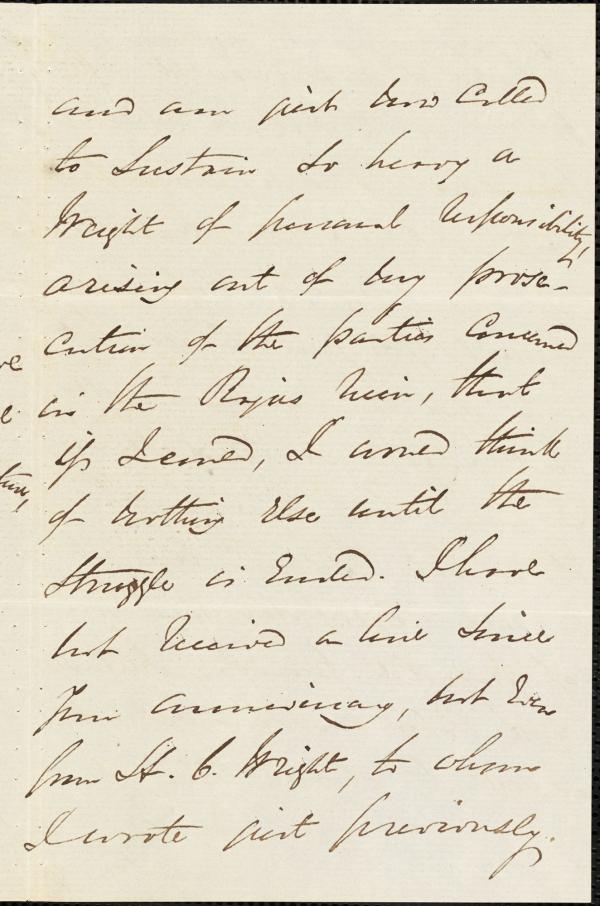 and am just now called
to sustain so heavy a
weight of personal responsibility,
arising out of my prose-
cution of the parties concerned
in the Rajas ruin, that
if I could, I would think
of nothing else until the
struggle is Ended. I have
not received a line since
your anniversary, not Even
from H. C. Wright, to whom
I wrote just previously.